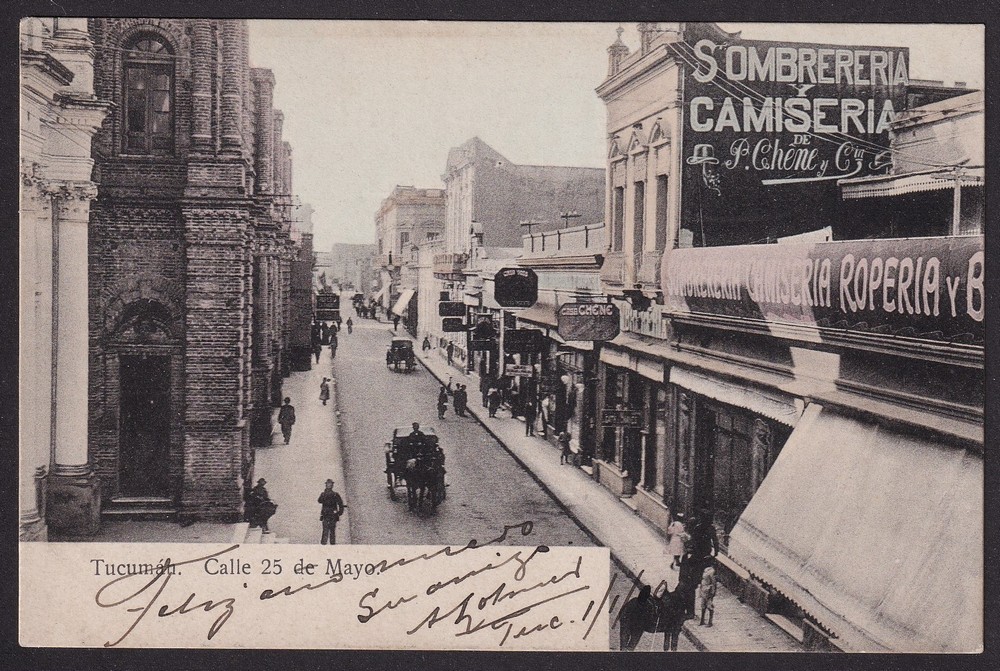 SOMBRERERIA
Y
CAMISERIA
DE
P. Chene y Cia
CAMISERIA ROPERIA Y B
CASA CHENE
Tucumán. Calle 25 de Mayo.
Feliz año nuevo
Su amigo
Tuc. 1/1/